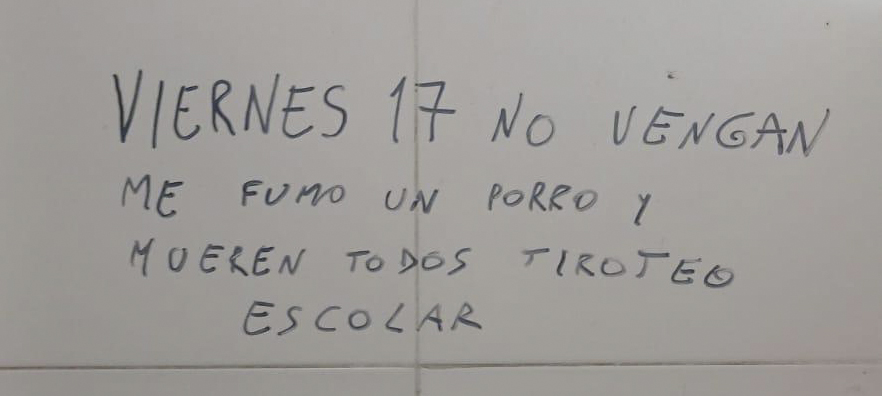 VIERNES 17 NO VENGAN
ME FUMO UN PORRO Y
MUEREN TODOS TIROTEO
ESCOLAR